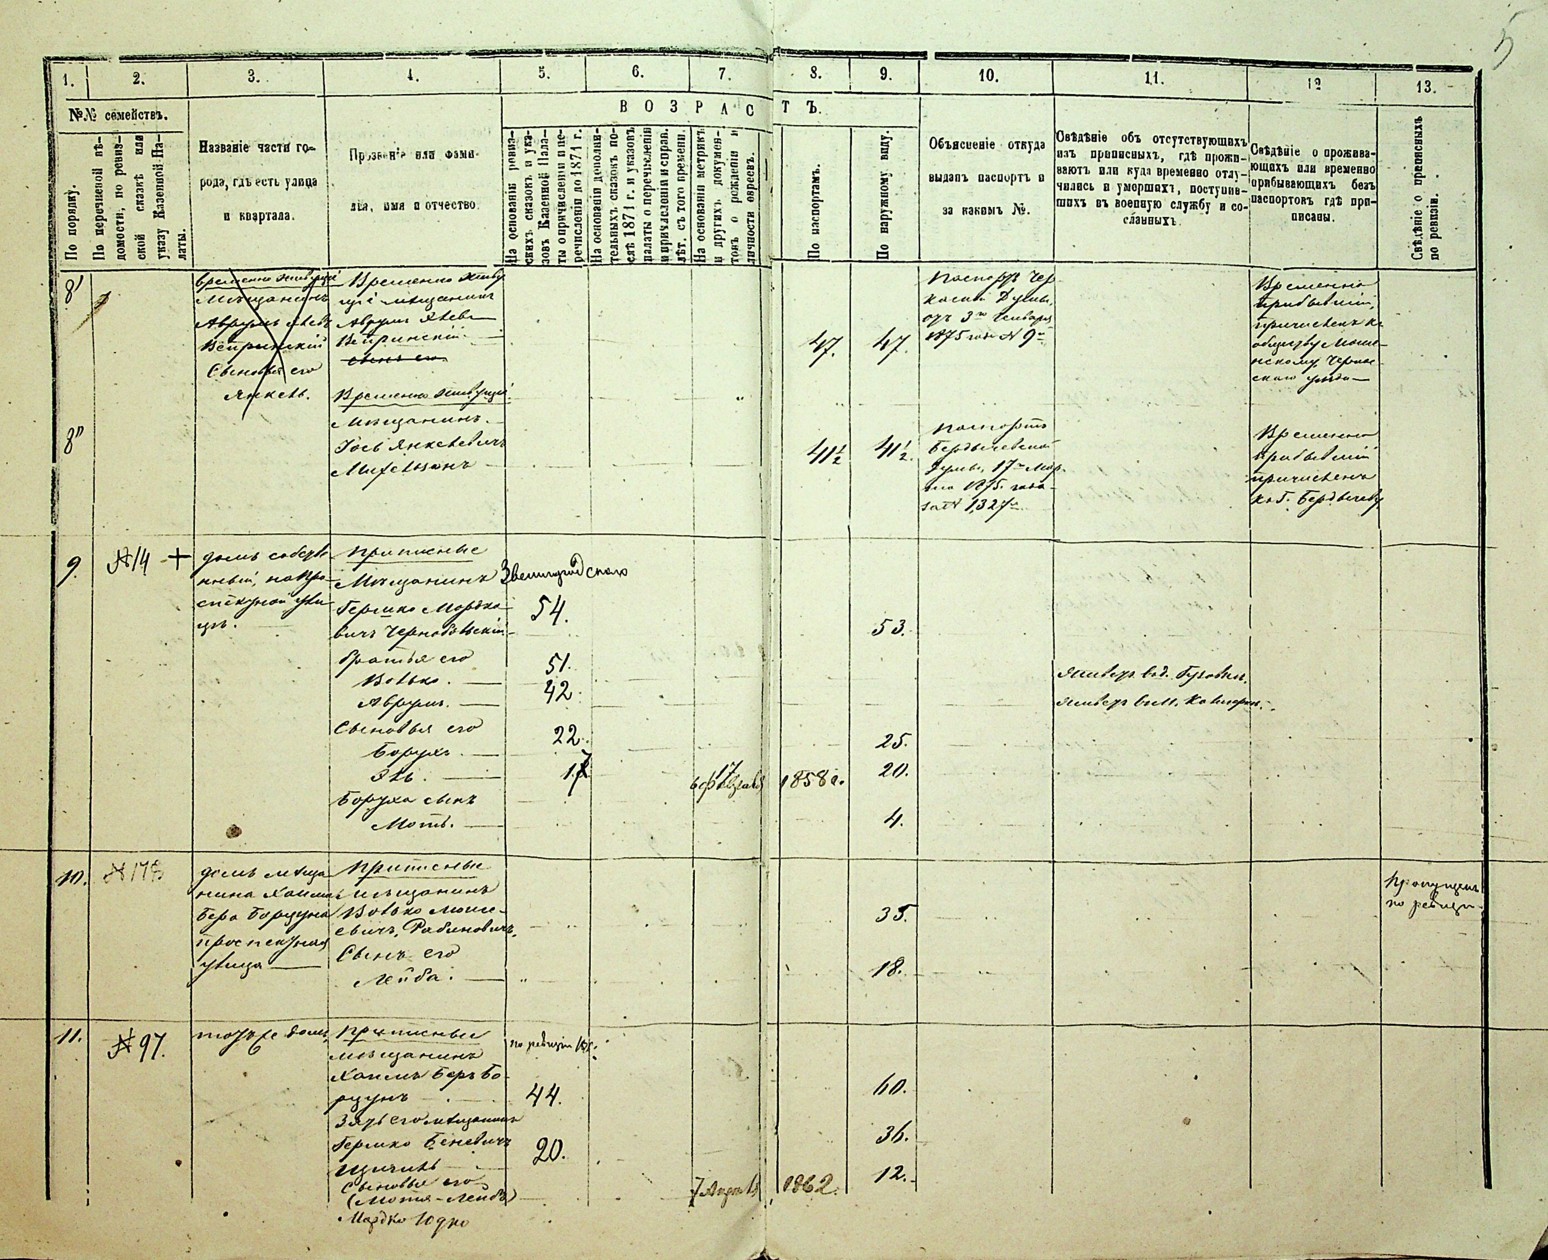 5
1. 2. 3. 4. 5. 6. 7. 8. 9. 10. 11. 12 13.
№№ семействъ.
По порядку.
По перечневой вѣ-
домости, по ревиз-
ской сказкѣ или
указу Казенной Па-
латы.
Названіе части го-
рода, гдѣ есть улица
и квартала.
Прозвеніе или фами-
лія, имя и отчество
ВОЗРАСТЪ.
На основаніи ревиз-
скихъ сказокъ и ука-
зовъ Казенной Пала-
ты о причисленіи и пе-
речисленіи до 1871 г.
На основаніи дополни-
тельныхъ сказокъ по-
слѣ 1871 г. и указовъ
палаты о перечисленіи
и причисленіи и справ.
лѣт. съ того времени.
На основаніи метрикъ
и другихъ докумен-
товъ о рожденіи и
личности евреевъ.
По паспортамъ.
По наружному виду.
Объясненіе откуда
выданъ паспортъ и
за какимъ №.
Свѣдѣніе объ отсутствующихъ
изъ приписныхъ, гдѣ прожи-
ваютъ или куда временно отлу-
чились и умершихъ, поступив-
шихъ въ военную службу и со-
сланныхъ
Свѣдѣніе о прожива-
ющихъ или временно
прибывающихъ безъ
паспортовъ гдѣ при-
писаны.
Свѣдѣніе о приписныхъ
по ревизіи.
8'
Временно живущій
Мѣщанинъ
Аврумъ
Вейринскій
Сыновья его
Янкель.
Временно живу
щій мѣщанинъ
Аврумъ
Вейринскій
сынъ его
47. 47.
Паспортъ Чер-
каской Думы,
отъ 3го Генваря
1875 года № 9
Временно
прибывшій,
причисленъ къ
обществу Моше-
нскому, Черка-
скаго уѣзда
8"
Временно живущій
Мѣщанинъ
Янкелевичъ
41½ 41½.
Паспортъ
Бердычевской
Думы, 17 Мар-
та 1875 года
за № 1327
Временно
прибывшій
причисленъ
къ г. Бердычеву
9. №14 +
домъ собстве-
нный, на Про-
спектной ули-
цѣ.
Приписные
Мѣщанинъ Звенигородскаго
Гершко Мордко-
вичъ Чернобыльскій
54. 53.
братья его
Волько. 51. живетъ въ д.
Аврумъ. 42 живетъ въ м.
Сыновья его
Борухъ. 22 25.
Эль. 17 17 февраля 1858 г. 20.
Боруха сынъ
Мотъ. 4.
10. №178
домъ мѣща
нина Хаима
Бера Борцуна
проспектная
улица
Приписные
мѣщанинъ
Волько Моше-
евичъ, Рабиновичъ,
35.
Сынъ его
Лейба. 18.
Пропущенъ
по ревизи-
11. №97.
тотъ же домъ,
Приписные
мѣщанинъ
по ревизіи
Хаимъ Беръ Бо-
рцунъ 44. 60.
Зять его мѣщанинъ
Гершко Беневичъ
20. 36.
Сыновья его
(Мотя-Лейбъ) 7 Апреля 1862. 12.
Мордко Юдко